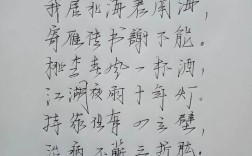 我居北海君南海，
寄雁传书謝不能。
桃李春风一杯酒，
江湖夜雨十年灯。
持家但有四立壁，
治病不蕲三折肱。